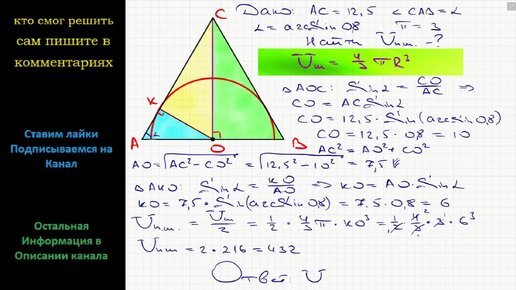 кто смог решить
сам пишите в
комментариях
Ставим лайки
Подписываемся на
Канал
Остальная
Информация в
Описании канала
C
K
A
α
O
B
Дано: AC = 12,5 ∠CAB = α
α = arcsin 0,8 π = 3
Найти Uш. - ?
Uш = 4/3 πR³
△AOC: Sinα = CO/AC ⇒
CO = AC Sinα
CO = 12,5 · Sin(arcsin 0,8)
CO = 12,5 · 0,8 = 10
AC² = AO² + CO²
AO = √AC² - CO² = √12,5² - 10² = 7,5
△AKO: Sinα = KO/AO ⇒ KO = AO · Sinα
KO = 7,5 · Sin(arcsin 0,8) = 7,5 · 0,8 = 6
Uпш. = Uш/2 = 1/2 · 4/3 π · KO³ = 1/2 · 4/3 · 3 · 6³
Uпш = 2 · 216 = 432
Ответ: U